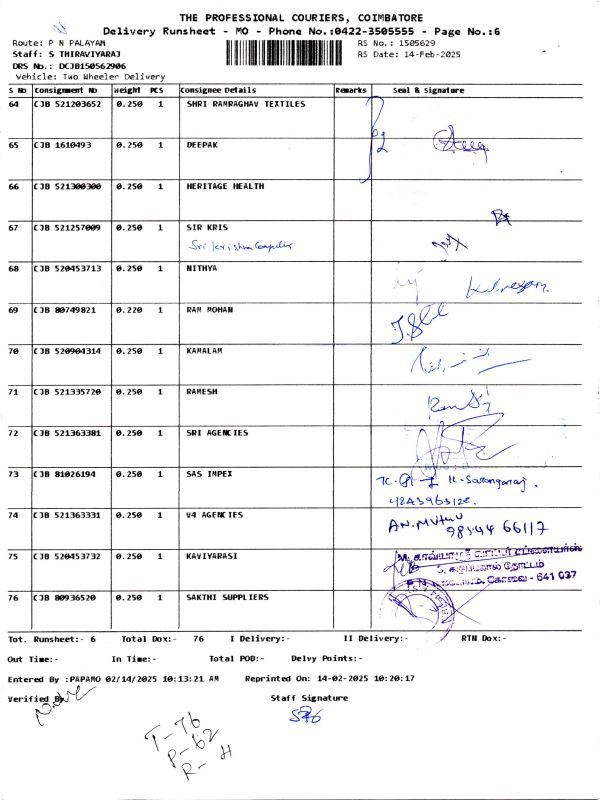 THE PROFESSIONAL COURIERS, COIMBATORE
Delivery Runsheet - MO - Phone No.:0422-3505555 - Page No.:6
Route: P N PALAYAM
RS No.: 1505629
Staff: S THIRAVIYARAJ
RS Date: 14-Feb-2025
DRS No.: DCJB150562906
Vehicle: Two Wheeler Delivery
S No Consignment No Weight PCS Consignee Details Remarks Seal & Signature
64 CJB 521203652 0.250 1 SHRI RAMRAGHAV TEXTILES
65 CJB 1610493 0.250 1 DEEPAK
66 CJB 521300300 0.250 1 HERITAGE HEALTH
67 CJB 521257009 0.250 1 SIR KRIS
Sri Krishna Computer
68 CJB 520453713 0.250 1 NITHYA
69 CJB 80749821 0.220 1 RAM MOHAN
70 CJB 520904314 0.250 1 KAMALAM
71 CJB 521335720 0.250 1 RAMESH
72 CJB 521363381 0.250 1 SRI AGENCIES
73 CJB 81026194 0.250 1 SAS IMPEX
74 CJB 521363331 0.250 1 V4 AGENCIES
98944 66117
75 CJB 520453732 0.250 1 KAVIYARASI
தோட்டம்
கோவை - 641 037
76 CJB 80936520 0.250 1 SAKTHI SUPPLIERS
Tot. Runsheet:- 6 Total Dox:- 76 I Delivery:- II Delivery:- RTN Dox:-
Out Time:- In Time:- Total POD:- Delvy Points:-
Entered By :PAPAMO 02/14/2025 10:13:21 AM Reprinted On: 14-02-2025 10:20:17
Verified By Staff Signature
T-76
P-62
R-